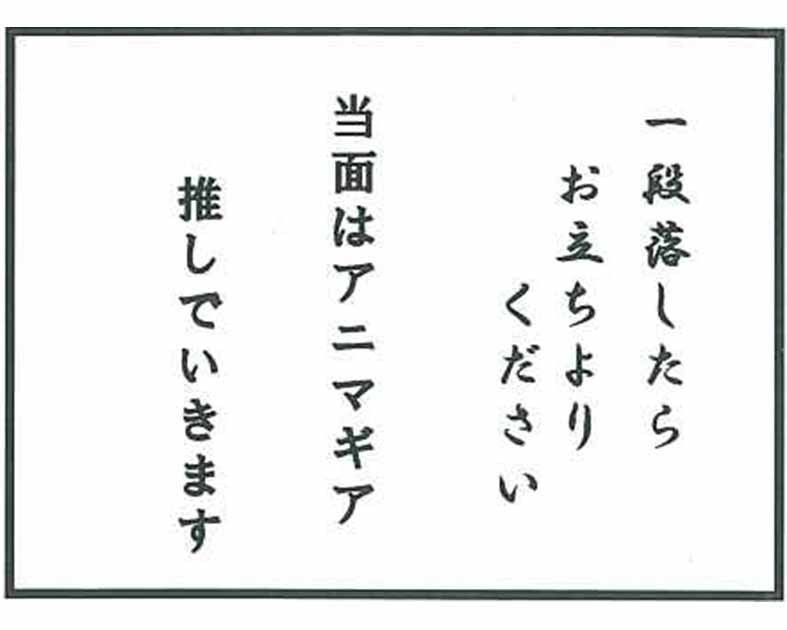 一段落したら
お立ちより
ください
当面はアニマギア
推しでいきます